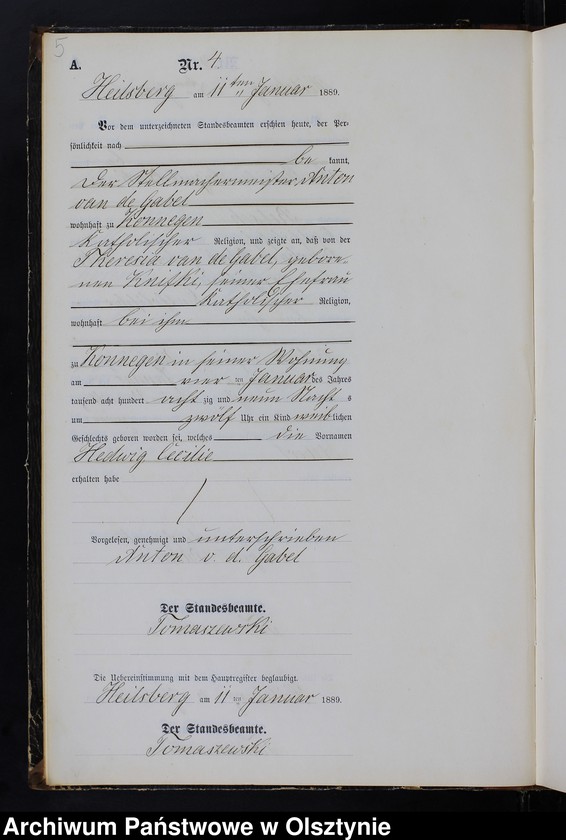 5
A. Nr. 4
Heilsberg am 11ten Januar 1889.
Vor dem unterzeichneten Standesbeamten erschien heute, der Per-
sönlichkeit nach
be kannt,
der Stellmachermeister Anton
van de Gabel
wohnhaft zu Konnegen
Katholischer Religion, und zeigte an, daß von der
Theresia van de Gabel, gebore-
nen Knifki, seiner Ehefrau
Katholischer Religion,
wohnhaft bei ihm
zu Konnegen in seiner Wohnung
am vier ten Januar des Jahres
tausend acht hundert acht zig und neun Nachts
um zwölf Uhr ein Kind weiblichen
Geschlechts geboren worden sei, welches die Vornamen
Hedwig Cecilie
erhalten habe
Vorgelesen, genehmigt und unterschrieben
Anton v. d. Gabel
Der Standesbeamte.
Tomaszewski
Die Uebereinstimmung mit dem Hauptregister beglaubigt.
Heilsberg am 11 ten Januar 1889.
Der Standesbeamte.
Tomaszewski
Archiwum Państwowe w Olsztynie